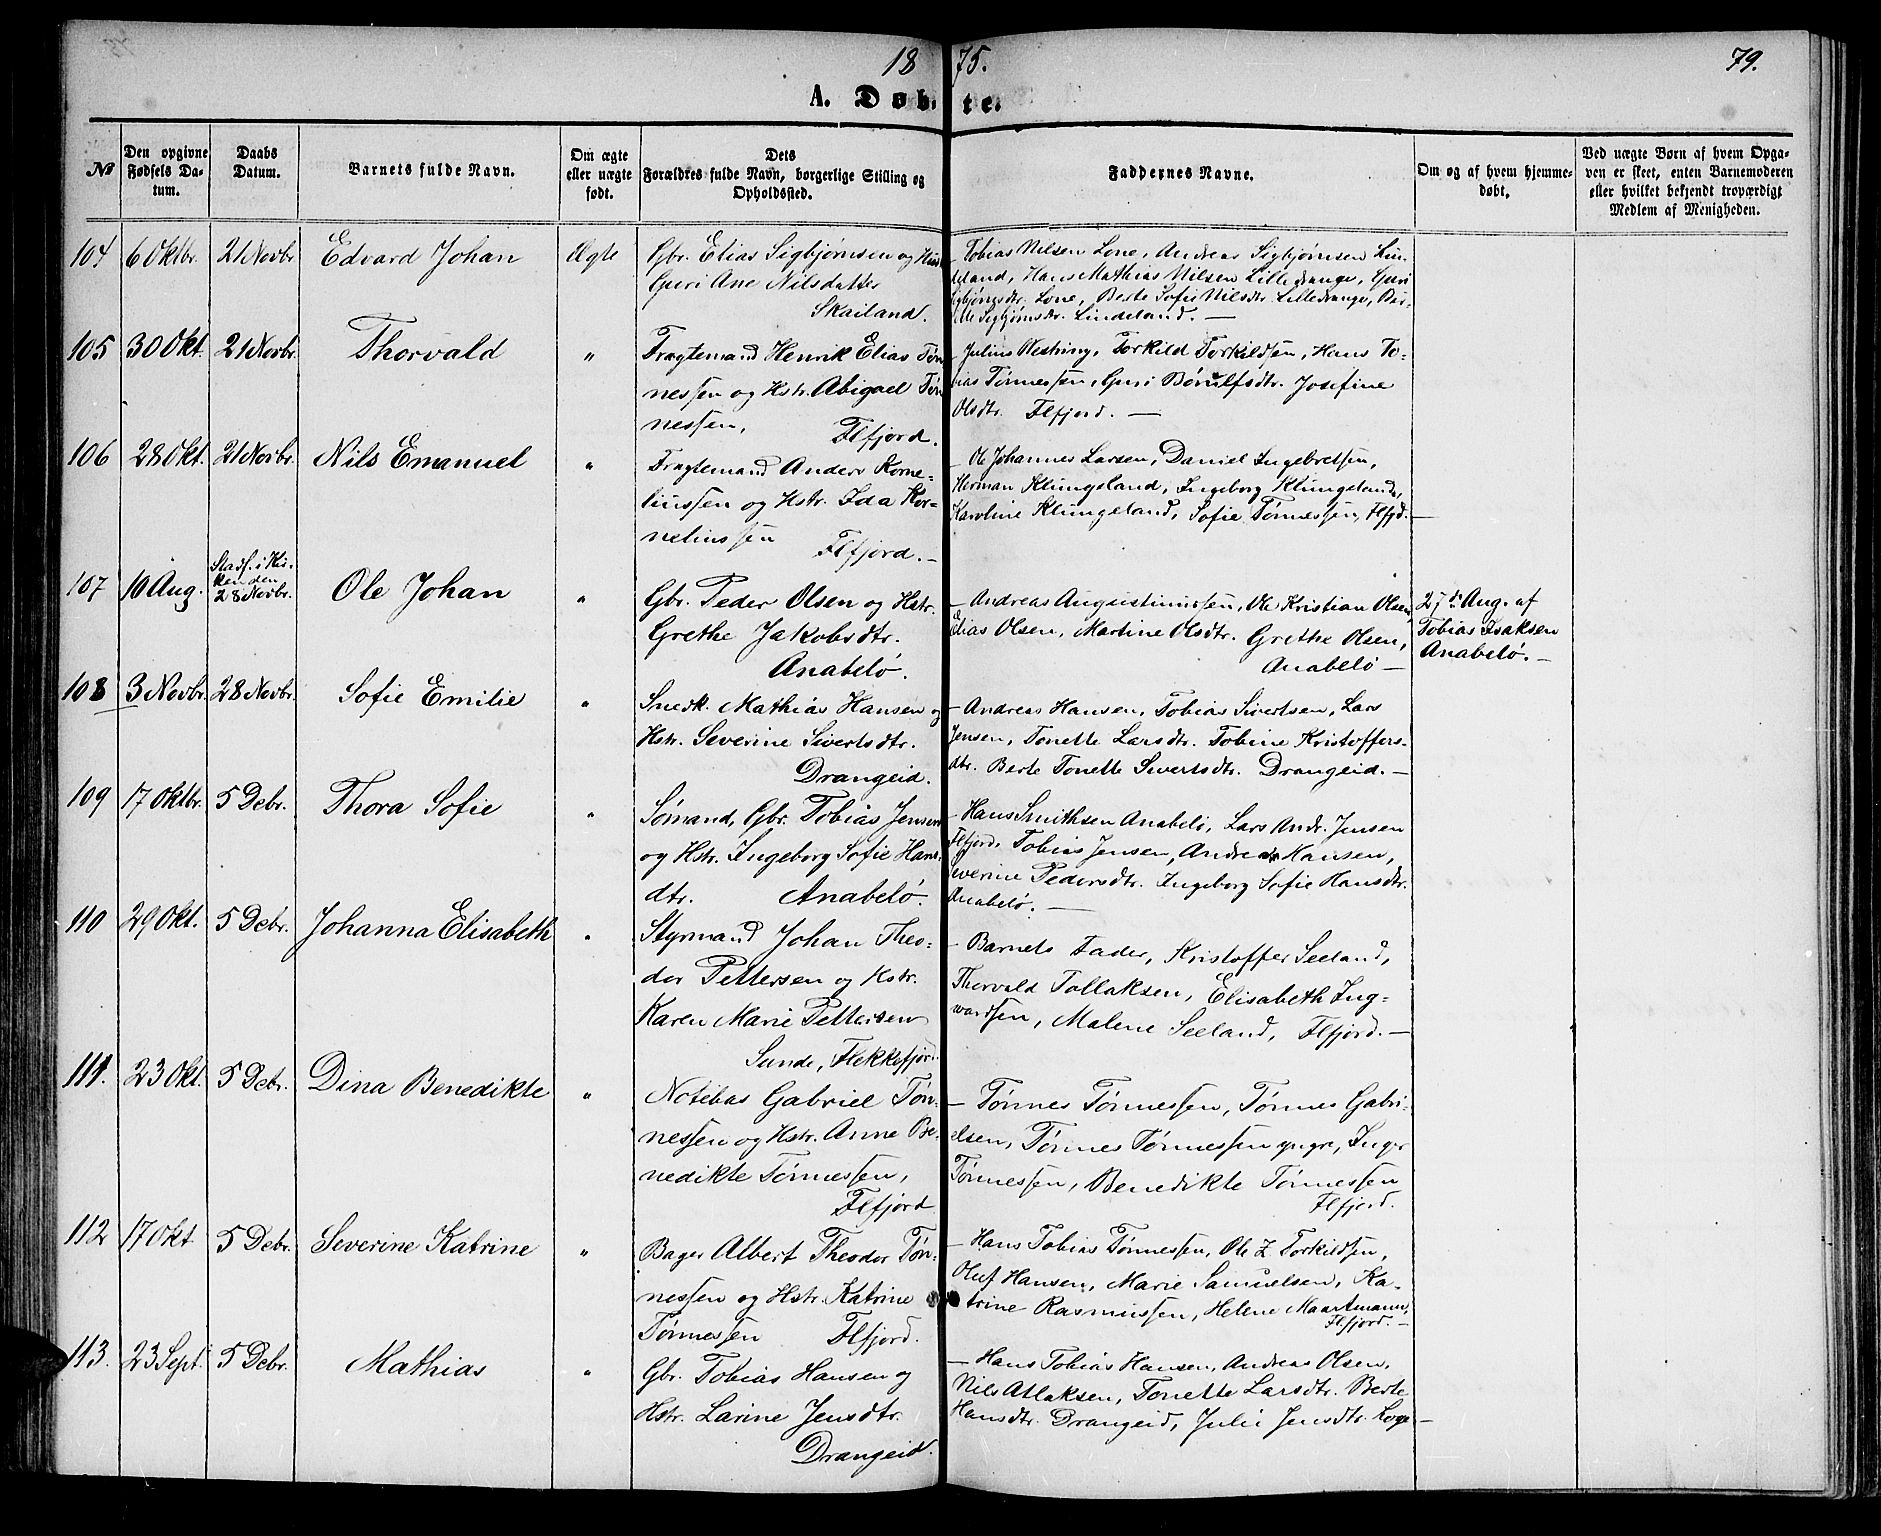 1875. 79.
A. Døbte.
№
Den opgivne Fødsels Datum.
Daabs Datum.
Barnets fulde Navn.
Om ægte eller uægte født.
Dets Forældres fulde Navn, borgerlige Stilling og Opholdssted.
Faddernes Navne.
Om og af hvem hjemmedøbt.
Ved uægte Børn af hvem Opgaven er skeet, enten Barnemoderen eller hvilket bekjendt troværdigt Medlem af Menigheden.
104 6 Oktbr. 21 Novbr Edvard Johan Ægte
Gbr. Elias Sigbjørnsen og Hus
Guri Ane Nilsdatter
Skailand.
Tobias Nilsen Lone, Andreas Sigbjørnsen Lin-
deland, Hans Mathias Nilsen Lilledrange, Guri
Sigbjørnsdtr. Lone, Berte Sofie Nilsdtr. Lilledrange, Ber-
Sigbjørnsdtr. Lindeland. —
105 30 Okt. 21 Novbr. Thorvald "
Fragtemand Henrik Elias Tøn
nessen og Hstr. Abigael Tøn
nessen, Flfjord.
— Julius Westring, Torkild Torkildsen, Hans To-
bias Tønnessen, Guri Børulfsdtr. Josefine
Olsdtr. Flfjord. —
106 28 Okt. 21 Novbr. Nils Emanuel "
Fragtemand Anders Korne-
liussen og Hstr. Ida Kor-
neliussen Flfjord. —
— Ole Johannes Larsen, Daniel Ingebretsen,
Herman Klungeland, Ingeborg Klungeland,
Karoline Klungeland, Sofie Tønnessen, Flfjd. —
107 10 Aug. Stadf. i Kir-
ken den
28 Novbr. Ole Johan "
Gbr. Peder Olsen og Hstr.
Grethe Jakobsdtr.
Anabelø.
— Andreas Augustinussen, Ole Kristian Olsen,
Elias Olsen, Martine Olsdtr. Grethe Olsen,
Anabelø —
27de Aug. af
Tobias Isaksen
Anabelø. —
108 3 Novbr. 28 Novbr. Sofie Emilie "
Snedk. Mathias Hansen og
Hstr. Severine Sivertsdtr.
Drangeid.
— Andreas Hansen, Tobias Sivertsen, Lars
Jensen, Tonette Larsdtr. Tobine Kristoffers-
dtr. Berte Tonette Sivertsdtr. Drangeid. —
109 17 Oktbr. 5 Debr. Thora Sofie "
Sømand, Gbr. Tobias Jensen
og Hstr. Ingeborg Sofie Hans
dtr. Anabelø.
— Hans Smithsen Anabelø, Lars Andr. Jensen
Flfjord, Tobias Jensen, Andreas Hansen,
Severine Pedersdtr. Ingeborg Sofie Hansdtr.
Anabelø. —
110 29 Okt. 5 Debr. Johanna Elisabeth "
Styrmand Johan Theo-
dor Pettersen og Hstr.
Karen Marie Pettersen
Sunde, Flekkefjord.
— Barnets Fader, Kristoffer Seeland,
Thorvald Tollaksen, Elisabeth Ing-
wardsen, Malene Seeland, Flfjord. —
111. 23 Okt. 5 Debr. Dina Benedikte "
Notebas Gabriel Tøn-
nessen og Hstr. Anne Be-
nedikte Tønnessen,
Flfjord
— Tønnes Tønnessen, Tønnes Gabri-
elsen, Tønnes Tønnessen yngre, Inger
Tønnessen, Benedikte Tønnessen
Flfjord.
112 17 Okt 5 Debr. Severine Katrine "
Bager Albert Theodor Tøn-
nessen og Hstr. Katrine
Tønnessen Flfjord.
— Hans Tobias Tønnessen, Ole Z Torkildsen,
Oluf Hansen, Marie Samuelsen, Ka-
trine Rasmussen, Helene Maartmann,
Flfjord. —
113. 23 Sept. 5 Debr. Mathias "
Gbr. Tobias Hansen og
Hstr. Larine Jensdtr.
Drangeid.
— Hans Tobias Hansen, Andreas Olsen,
Nils Atlaksen, Tonette Larsdtr. Berte
Hansdtr. Drangeid, Julie Jensdtr. Loge —